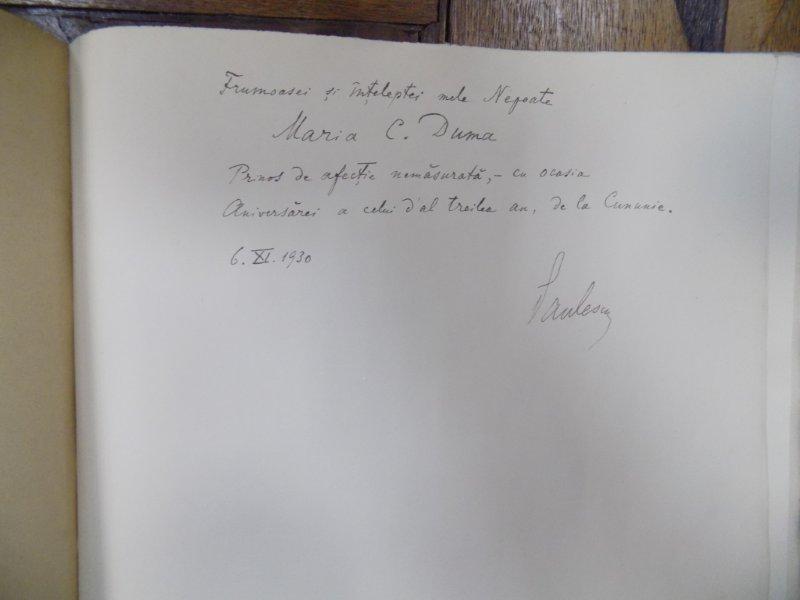 Frumoasei și înțeleptei mele Nepoate
Maria C. Duma
Prinos de afecție nemăsurată, – cu ocasia
Aniversărei a celui d'al treilea an, de la Cununie.
6. XI. 1930
Paulescu